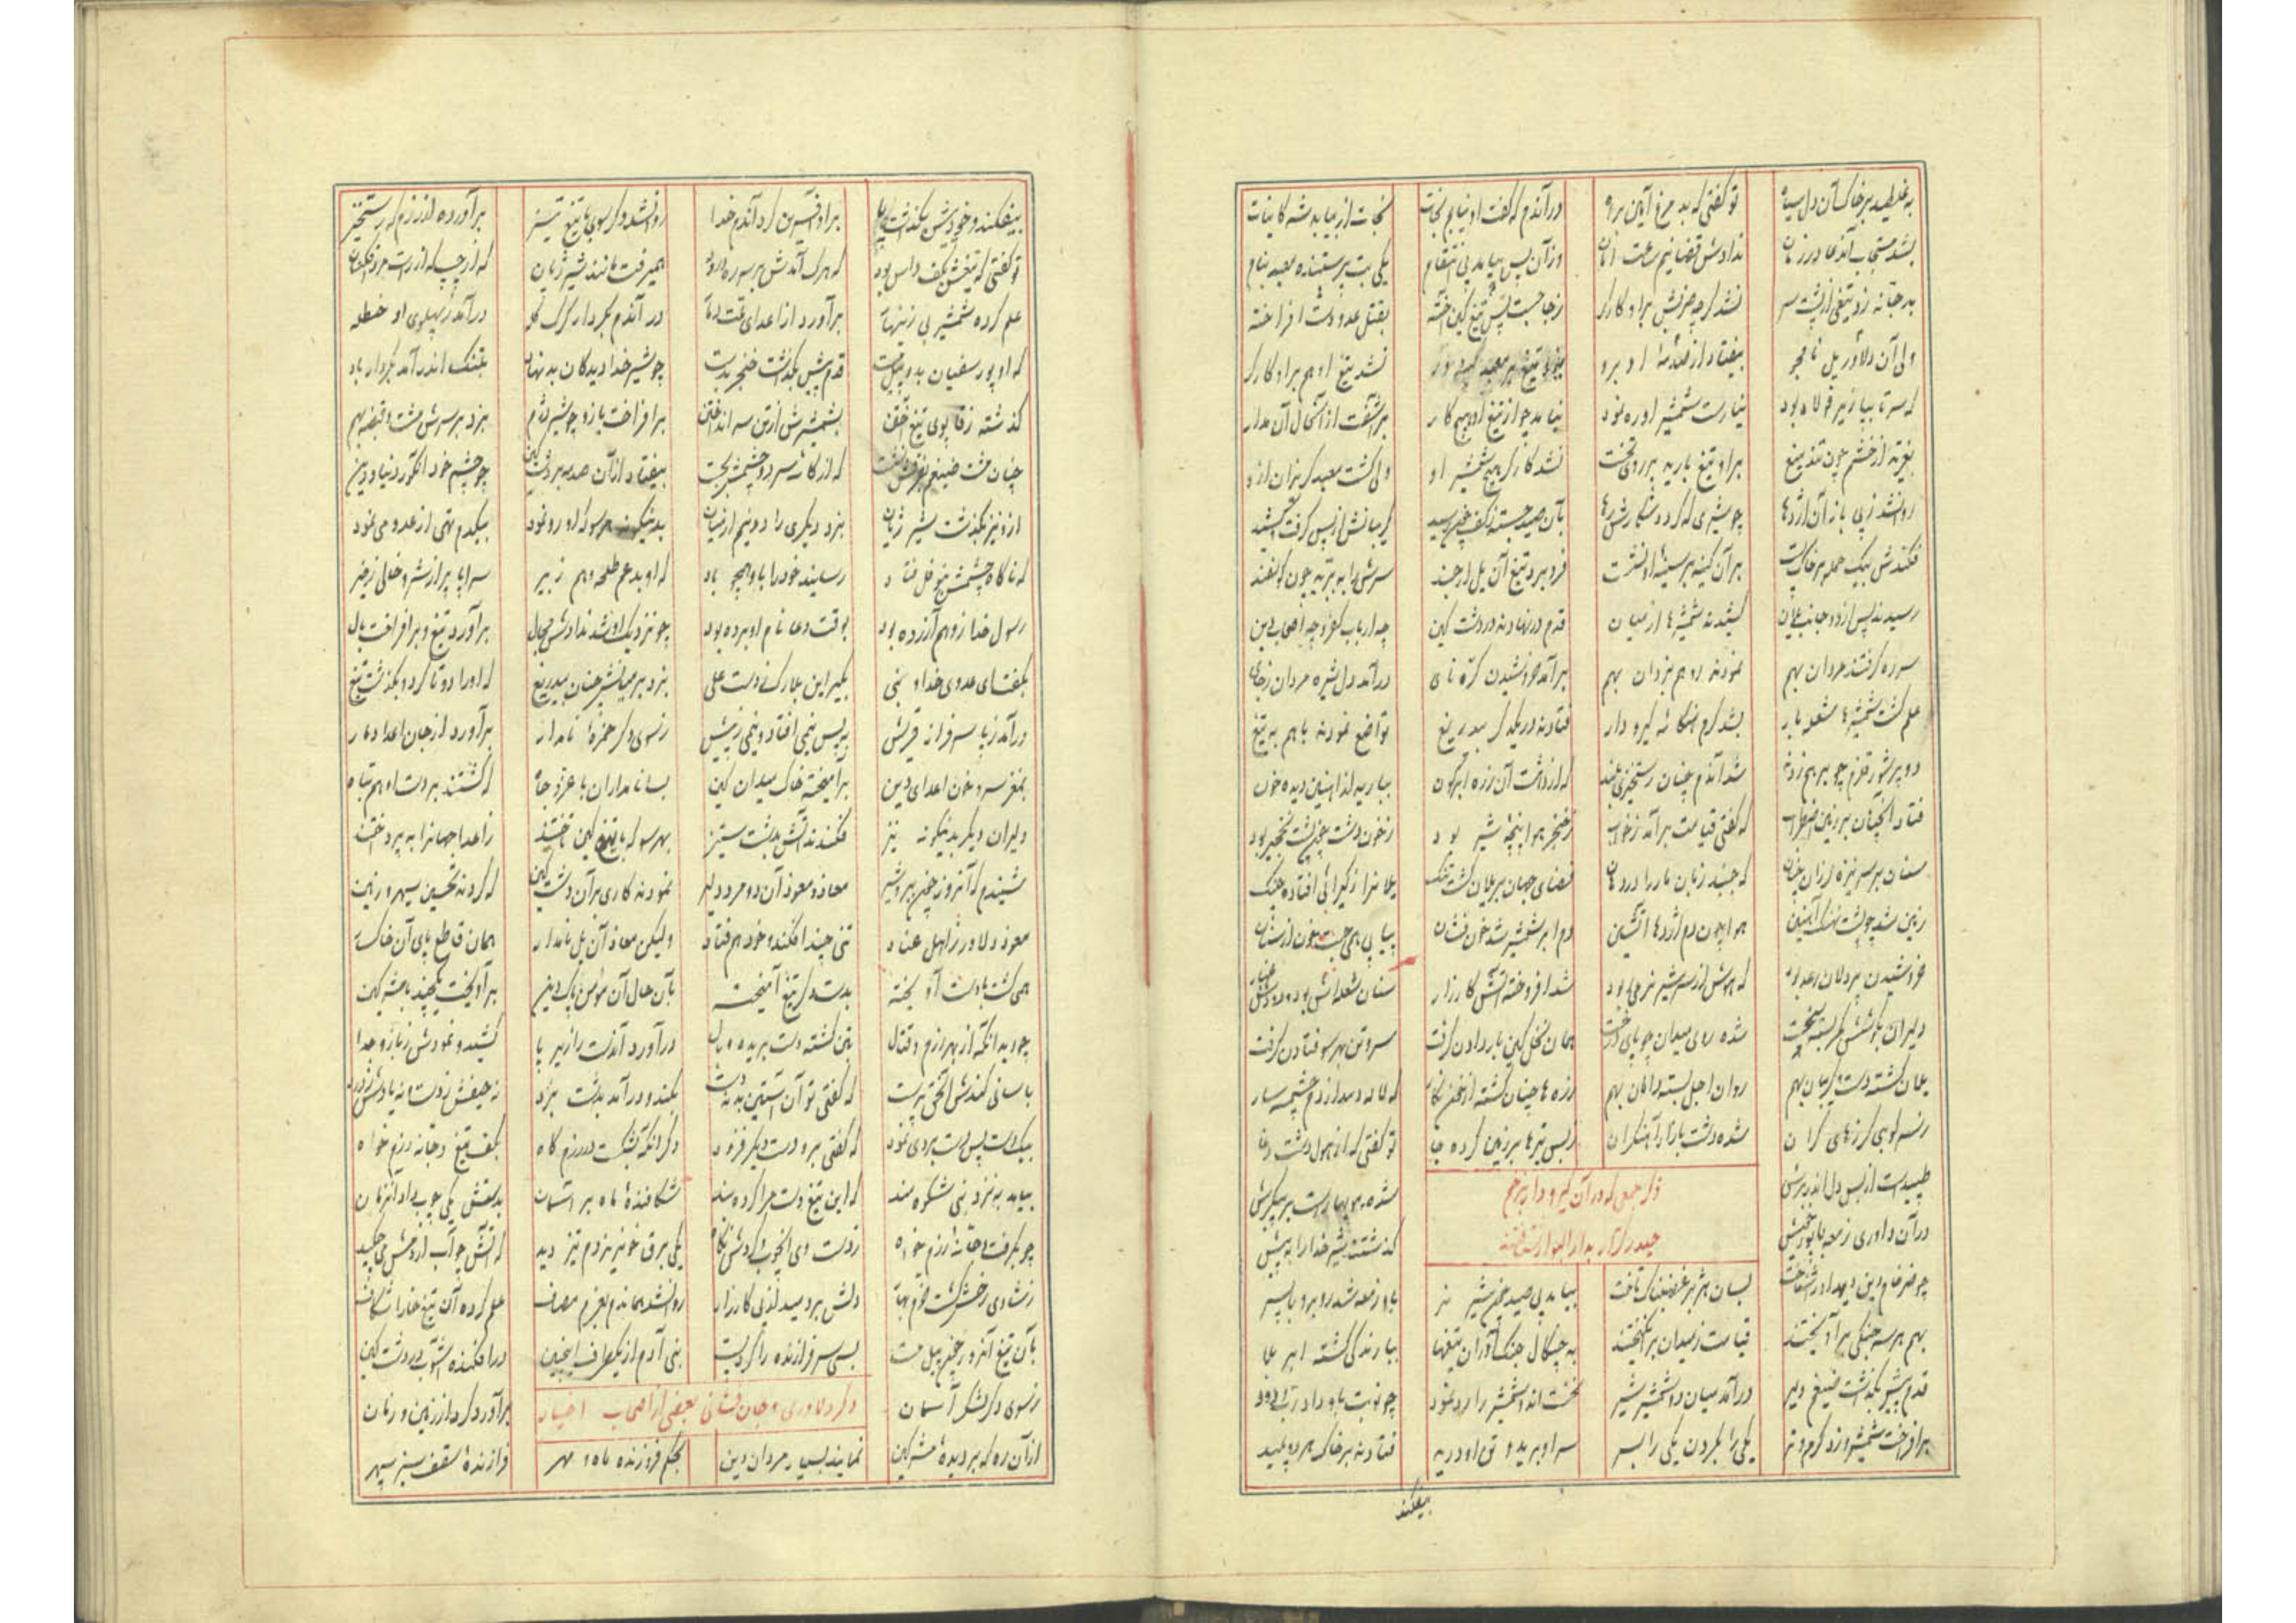 به غلطید بر خاک آن دل سیاه تو گفتی که بد مرغ آیین براه درآندم که گفت او نیابم نجات نجات از بیابد شه کاینات
بشد مستجاب آندعا در زمان ندادش قضا نیم ساعت امان وزآن پس بیامد پی انتقام یکی بت پرستنده معبد بنام
بدجانه زد تیغی از پشت سر نشد گرچه ضربش براو کارگر ز جا جست پس تیغ کین آخته بقتل عدو دست افراخته
ولی آن دلاور یل نامجو بیفتاد از صدمهٔ او برو تیغ بر معبد نشد تیغ او هم براو کارگر
که سر تا بپا زیر فولاد بود نیارست شمشیر او ره نمود نیامد چو از تیغ او هیچ کار برآشفت از آنحال آن مدار
بغرید از خشم چون تند میغ براو تیغ بارید بر روی تخت نشد کارگر هیچ شمشیر او ولی گشت معبد گریزان ازو
روانشد زپی باز آن اژدها چو شیری که گردد شکارش رها بآن صید جسته ز کف چون رسید گریبانش از پس گرفت و کشید
فکندش بیک حمله بر خاک پست برآن کینه بر سینه‌اش نشست فرو برد تیغ آن یل ارجمند سرش را به برید چون گوسفند
رسیدند پس از دو جانب یلان کشیدند شمشیرها از میان قدم درنهادند در دشت کین چه ارباب کفر و چه اصحاب دین
سر ره گرفتند مردان بهم نمودند رو هم نبردان بهم برآمد خروشیدن کره نای درآمد دل شیر مردان ز جای
علم گشت شمشیرها شعله بار بشد گرم هنگامهٔ گیرودار فتادند در یکدگر بیدریغ تواضع نمودند باهم به تیغ
دو پرشور قلزم چو بر هم زدند شد آندم چنان رستخیزی بلند که از دشت آن رزه آبگون ببارید از اینین دیده خون
فتاد آنچنان بر زمین اضطراب که گفتی قیامت برآمد ز خواب ز خنجر هوا پنجهٔ شیر بود ز خون دشت چون پشت نخجیر بود
سنان بر سر نیزه لرزان چنان که جنبد زبان مار را در دهان فضای جهان بر یلان گشت تنگ یلانرا ز گیرائی افتاده چنگ
زمین شد چو پشت نهنگ آهنین هوا چون دم اژدها آتشین دم ابر شمشیر شد خون فشان پیاپی همی جست خون از سنان
خروشیدن پردلان رعد بود که هوش از سر شیر نر می‌ربود شد افروخته آتش کارزار سنان شعله‌اش بود و دودش غبار
دلیران بکوشش کمر بسته سخت شده روی میدان چو پای درخت همان نخل کین بار دادن گرفت سر و تن بهر سو فتادن گرفت
یلان گشته دست و گریبان بهم روان اجل بسته دامان بهم زره‌ها چنان گشته از خون نگار که لاله دمد از دم چشمه سار
ز سرکوبی گرزهای گران شده دشت بازار آهنگران ز بس تیرها بر زمین کرده جا تو گفتی که از هول دشت وغا
طپیدست از بس دل اندر برش شده مو بهارست بر پیکرش
ذکر جمعی که در آن گیرودار بزخم
حیدر کرار به دار البوار شتافتند
درآن داوری زمعه با پور خویش گذشتند شیر خدا را به پیش
چو ضرغام دین دیهدا در شناخت بسان هژبر غضبناک تاخت بیامد پی صید چون شیر نر باو زمعه شد روبرو با پسر
بهم هر سه جنگی برآویختند قیامت ز میدان برانگیختند به چنگال جنگ آوران تیغها ببارندگی گشته ابر بلا
قدم پیش بگذشت ضیغم دلیر درآمد میان دو شمشیر شیر نخست آمد اشمشیر را رد نمود چو نوبت باو داد رب ودود
برافراخت شمشیر و زد گرم و تر یکی را بگردن یکی را بسر سر او برید و تن او درید فتادند بر خاک هر دو پلید
بیفکند
بیفکند و خود پیش بگذشت باز براو آفرین کرد آندم خدا روانشد دگر سوی با تیغ تیز برآورده از رزمگه رستخیز
تو گفتی که تیغش بکف داس بود که هرک آمدش بر سر ره درود همیرفت مانند شیر ژیان که از چپ که از راست مرد افکنان
علم کرده شمشیر بی زینهار برآورد از اعدای ملت دمار درآندم بکردار گرگ گله درآمد ز پهلوی او حنظله
که او پور سفیان بدو پیل مست قدم پیش بگذشت خنجر بدست چو شیر خدا دید کان بدنهاد بتنگ اندر آمد بکردار باد
گذشته ز قابوی تیغ آختن بشمشیرش از تن سر انداختن برافراخت بازو چو شیر دژم بزد بر سرش مشت و قبضه بهم
چنان مشت ضیغم بمغزش نشست که از کاسه سر دو چشمش بجست بیفتاد از آن صدمه بر دشت کین چو چشم خود انکور دنیا و دین
ازو نیز بگذشت شیر ژیان بزد دیگری را دو نیم از میان بدینگونه هر سو که او رو نمود بیکدم تهی از عدو می‌نمود
که ناگاه چشمش بنوفل فتاد رسانید خود را باو همچو باد که او بد عم طلحه و هم زبیر سراپا پر از شر و خالی ز خیر
رسول خدا زو هم آزرده بود بوقت دعا نام او برده بود چو نزدیک او شد ندادش مجال برآورد تیغ و برافراخت یال
بگفت ای عدوی خدا و نبی بگیر این یادگاری ز دست علی بزد بر میانش چنان بیدریغ که او را دو تا کرد و بگذشت تیغ
درآمد ز پا سرفراز قریش به پس نیمی افتاد و نیمی ز پیش ز سوی دگر حمزهٔ نامدار برآورد از جان اعدا دمار
بمغز سر و خون اعدای دین برآمیخته خاک میدان کین بسا نامداران با عز و جاه که گشتند بر دست او هم تباه
دلیران دیگر بدینگونه نیز فکندند آتش بدشت ستیز بهر سو که با تیغ کین تاختند ز اعدا جهانرا به پرداختند
شنیدم که آنروز چون ببر و شیر معاذ و معوذ آن دو مرد دلیر نمودند کاری برآن دشت کین که کردند تحسین سپهر و زمین
معوذ دلاور ز اهل عناد تنی چند افکند و خود هم فتاد ولیکن معاذ آن یل نامدار همان قاطع پای آن خاکسار
همی گشت با دست آویخته بدست دگر تیغ آمیخته بآن حال آن مؤمن پاکدین برآویخت با چند با مشرکین
چو دید آنکه از بهر رزم و قتال بتن گشته دست بریده وبال درآورد آندست را زیر پا کشید و نمودش ز بازو جدا
باسانی کندش از تختی پرست که گفتی تو آن آستین بد نه دست بکند و درآمد بدشت نبرد نه حیفش ز دست و نه یادش ز درد
بیکدست پس دست بردی نمود که گفتی برو دست دیگر فزود دگر آنکه بشکست در رزمگاه بکف تیغ دجانه رزم خواه
بیامد به نزد نبی شکوه مند که این تیغ دست مرا کرده بند شکافندهٔ ماه بر آسمان بدستش یکی چوب داد آنزمان
چو بگرفت دجانهٔ رزم خواه ز دست وی آنچوب و کردش نگاه یکی برق خونریز دم تیز دید که آتش چو آب از دمش می‌چکید
ز شادی رخش گشت خرم بهار دلش بردمید از پی کارزار روانشد هماندم بعزم مصاف علم کرده آن تیغ خارا شکاف
بآن تیغ آنروز چون پیل مست بسی سرفرازنده را کرد پست بنی آدم از یکطرف اینچنین درافکنده آشوب در دشت کین
ز سوی دگر لشکر آسمان برآورد گرد از زمین و زمان
ذکر دلاوری و جان فشانی بعضی از اصحاب اخیار
از آن ره که بر دیدهٔ مشرکین نمایند بسیار مردان دین بحکم فروزنده ماه و مهر فرازندهٔ سقف سبز سپهر